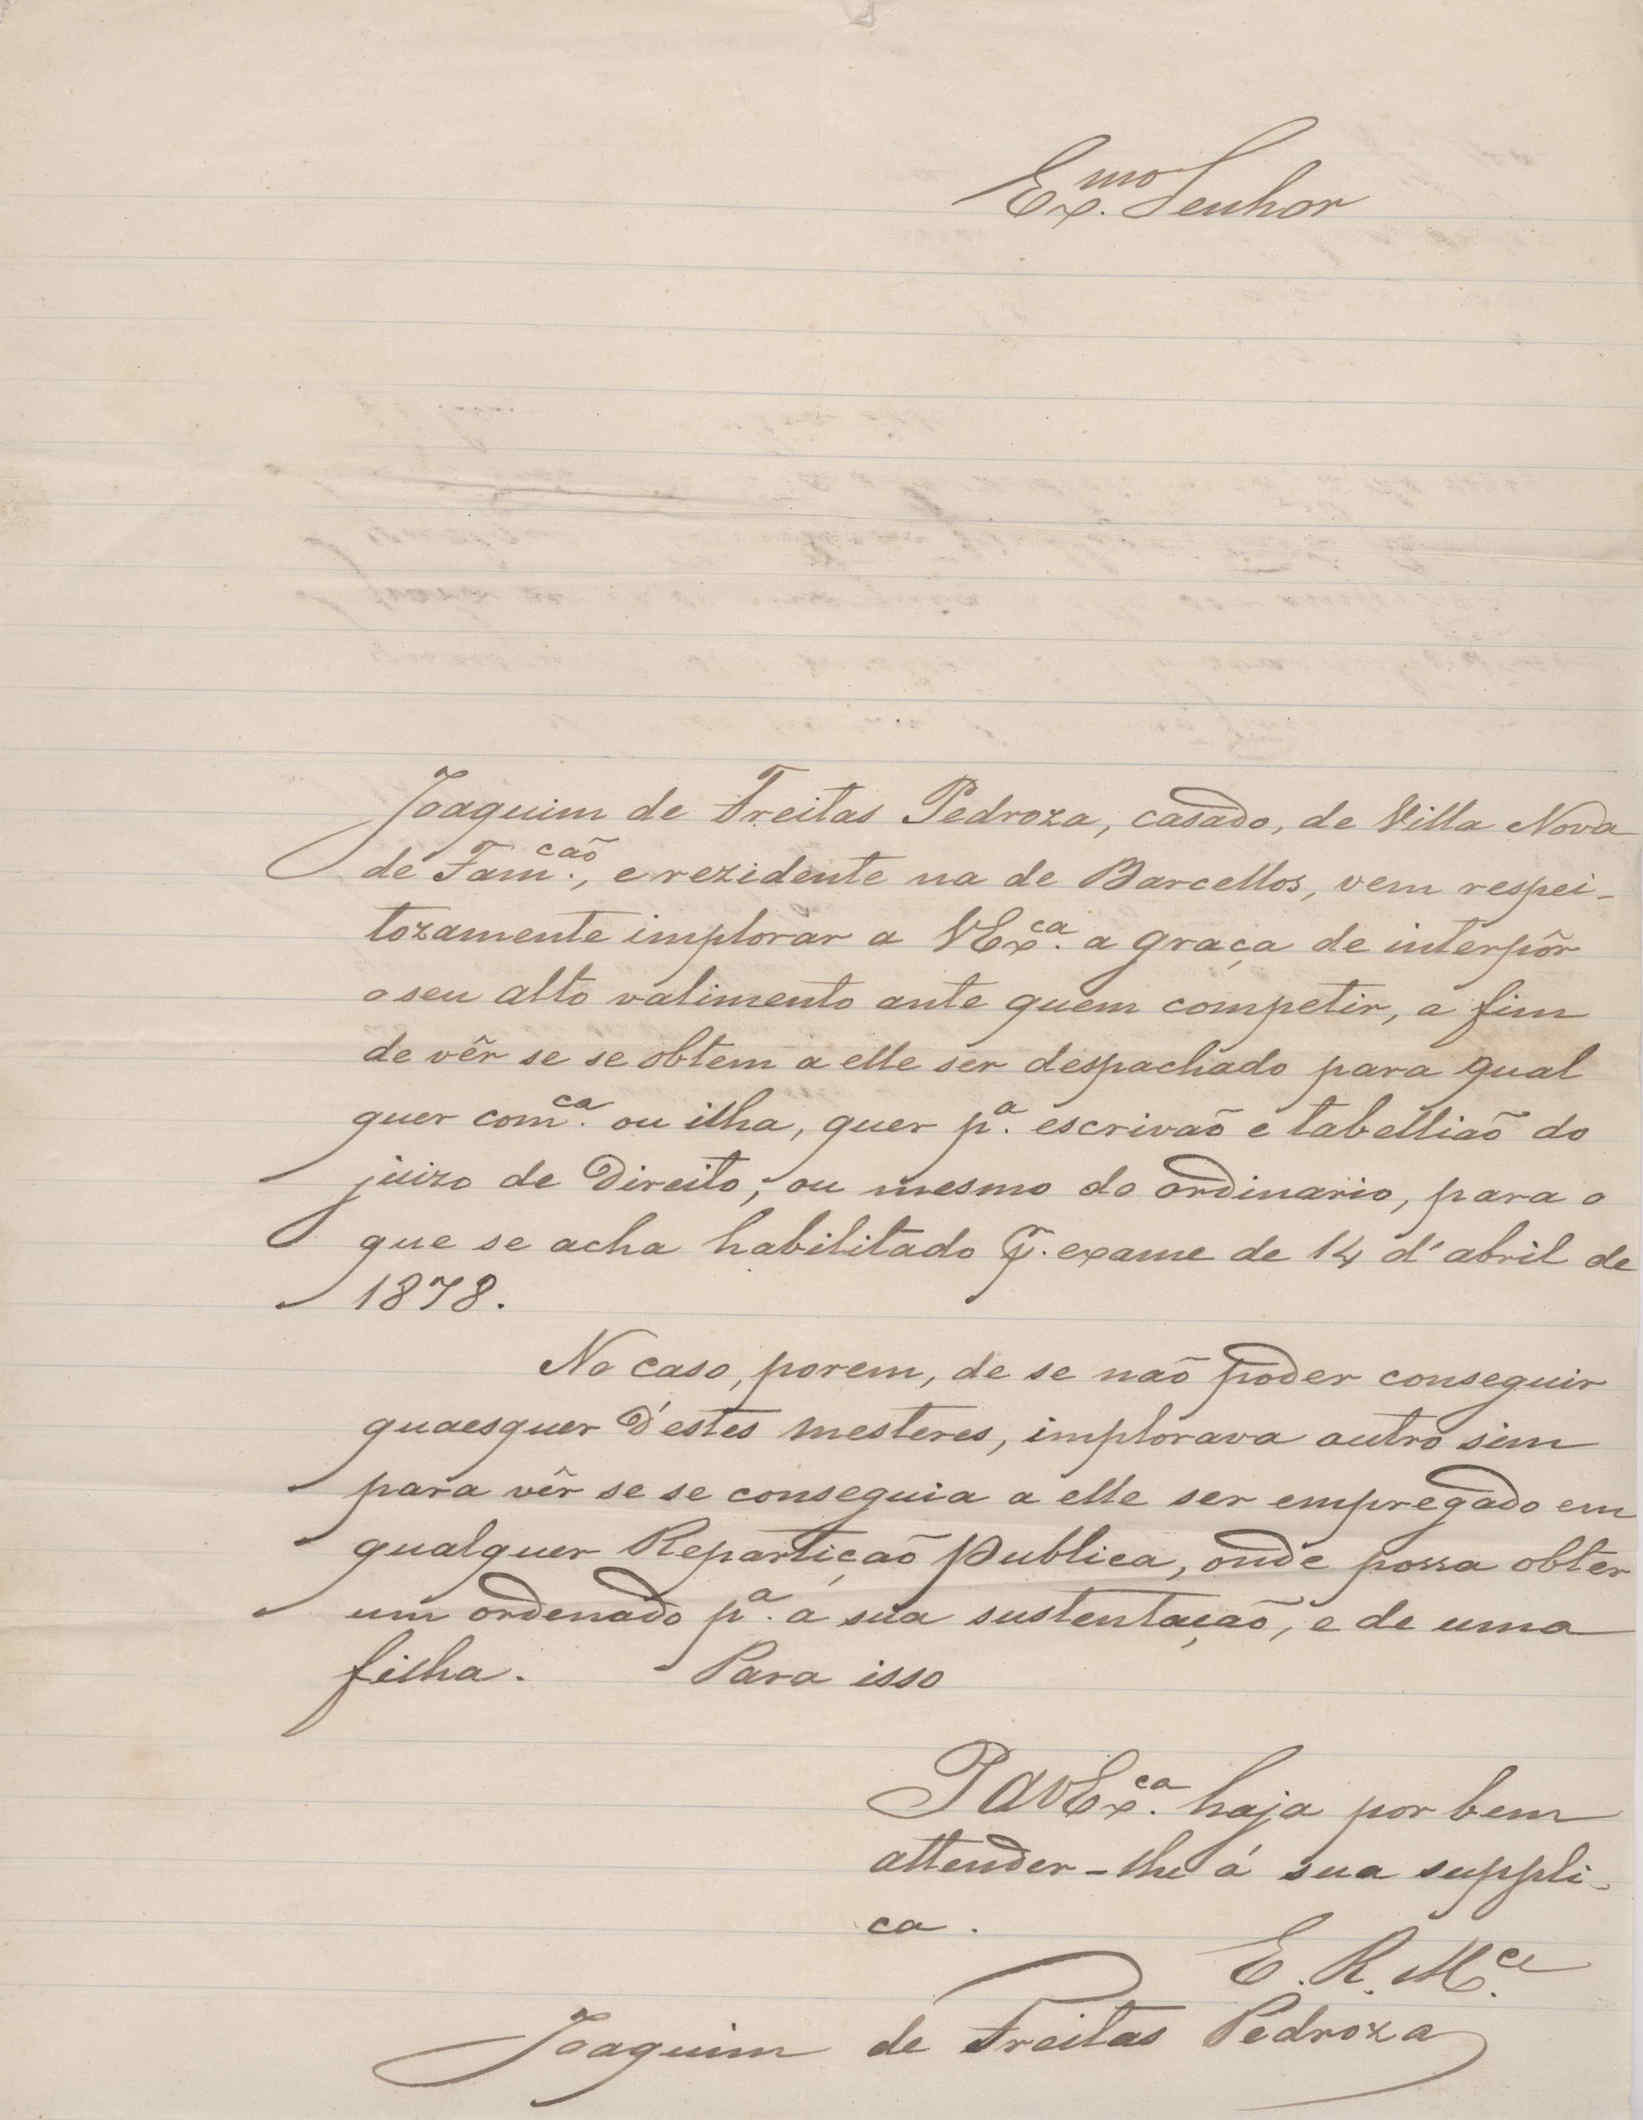 Ex.mo Senhor
Joaquim de Freitas Pedroza, casado, de Villa Nova
de Fam.caõ, e rezidente na de Barcellos, vem respei-
tozamente implorar a VEx.ca a graça de interpôr
o seu alto valimento ante quem competir, a fim
de vêr se se obtem a elle ser despachado para qual
quer com.ca ou ilha, quer p.a escrivaõ e tabelliaõ do
juizo de Direito, ou mesmo do ordinario, para o
que se acha habilitado p.r exame de 14 d'abril de
1878.
No caso, porem, de se naõ poder conseguir
quaesquer d'estes mesteres, implorava outro sim
para vêr se se conseguia a elle ser empregado em
qualquer Repartiçaõ Publica, onde possa obter
um ordenado p.a á sua sustentaçaõ, e de uma
filha. Para isso
P a VEx.ca haja por bem
attender-lhe á sua suppli-
ca.
E. R. M.ce
Joaquim de Freitas Pedroza